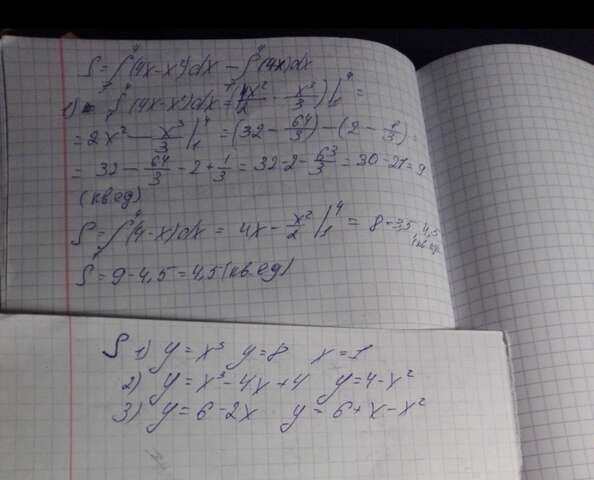 S = ∫₁⁴ (4x-x²)dx - ∫₁⁴ (4-x)dx
1) S = ∫₁⁴ (4x-x²)dx = (4x²/2 - x³/3)|₁⁴ =
= 2x² - x³/3 |₁⁴ = (32 - 64/3) - (2 - 1/3) =
= 32 - 64/3 - 2 + 1/3 = 32-2 - 63/3 = 30-21=9
(кв.ед)
S = ∫₁⁴ (4-x)dx = 4x - x²/2 |₁⁴ = 8-3,5 4,5
(кв.ед
S = 9-4,5 = 4,5 (кв.ед)
S 1) y = x³ y = 8 x = 1
2) y = x³-4x+4 y = 4-x²
3) y = 6-2x y = 6+x-x²